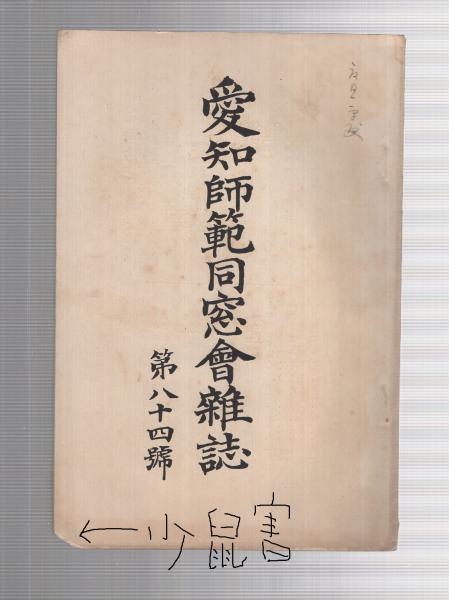 愛知師範同窓會雜誌
第八十四號
←少鼠害